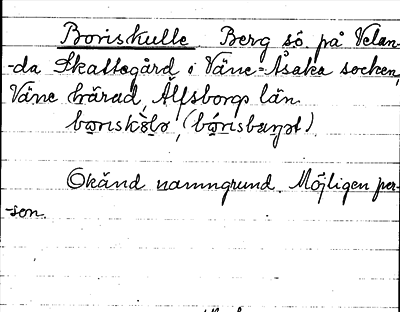 Boriskulle Berg sö på Velan-
-da Skattegård i Väne-Åsaka socken,
Väne härad, Älfsborgs län
Okänd namngrund. Möjligen per-
-son.